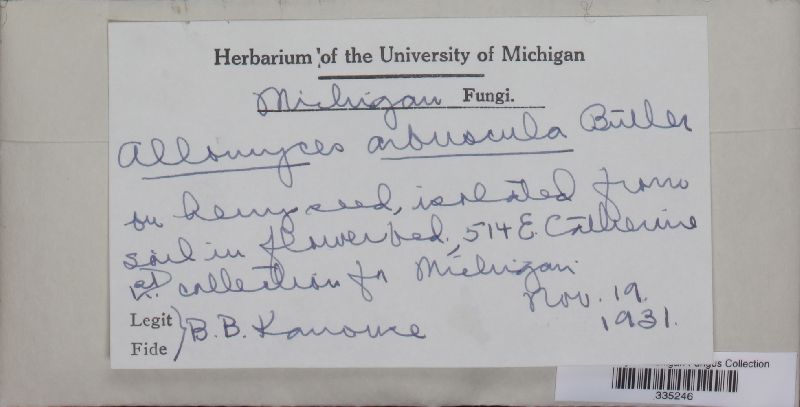 Herbarium of the University of Michigan
Michigan Fungi.
Allomyces arbuscula Butler
on hempseed, isolated from
soil in flower bed, 514 E. Catherine
1st collection fr Michigan.
Nov. 19.
1931.
Legit
Fide
B. B. Kanouse
Fungus Collection
335246